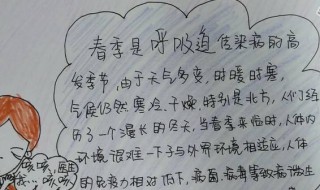 春季是呼吸道传染病的高
发季节，由于天气多变，时暖时寒，
气候仍然寒冷、干燥，特别是北方，人们经
历了一个漫长的冬天，当春季来临时，人体内
环境很难一下子与外界环境相适应，人体
的免疫力相对低下，病菌、病毒等致病微生
咳咳，医生
我…咳咳